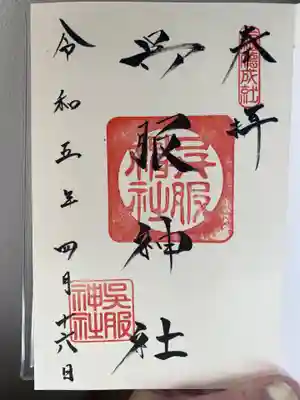 奉拝
呉服神社
呉服
神社
令和五年四月十六日
吳服
神社